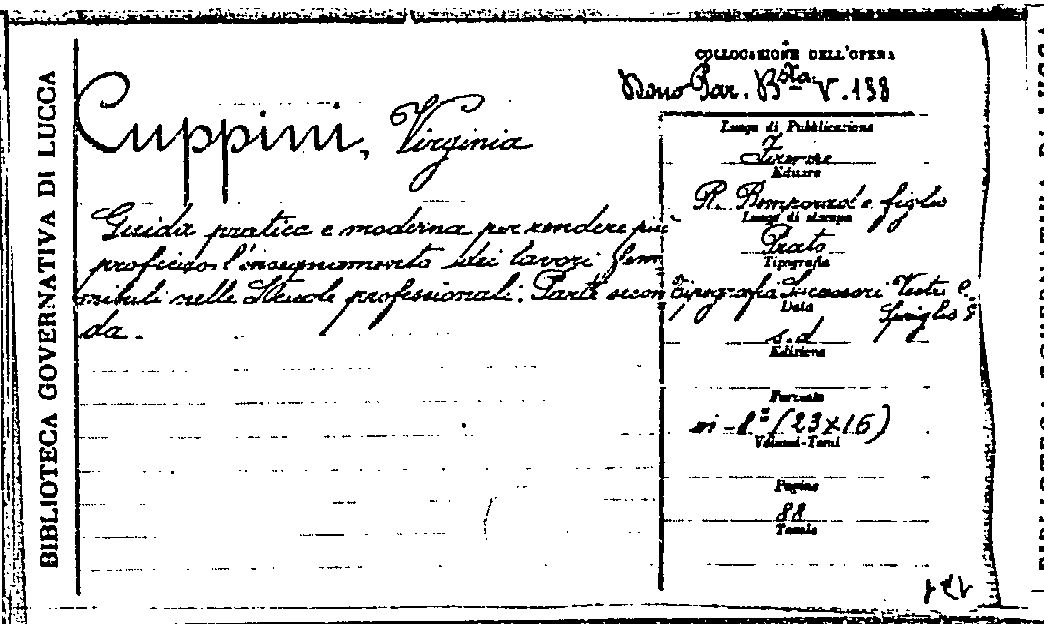 BIBLIOTECA GOVERNATIVA DI LUCCA
COLLOCAZIONE DELL'OPERA
Par. Bsta V. 138
Cuppini, Virginia
Guida pratica e moderna per rendere più
proficuo l'insegnamento dei lavori fem
minili nelle Scuole professionali. Parte secon
da.
Luogo di Pubblicazione
Firenze
Editore
R. Bemporad e figlio
Luogo di stampa
Prato
Tipografia
Tipografia Successori Vestri e
Data
s.d
Edizione
Formato
in-8º (23x16)
Volumi-Tomi
Pagine
88
Tavole